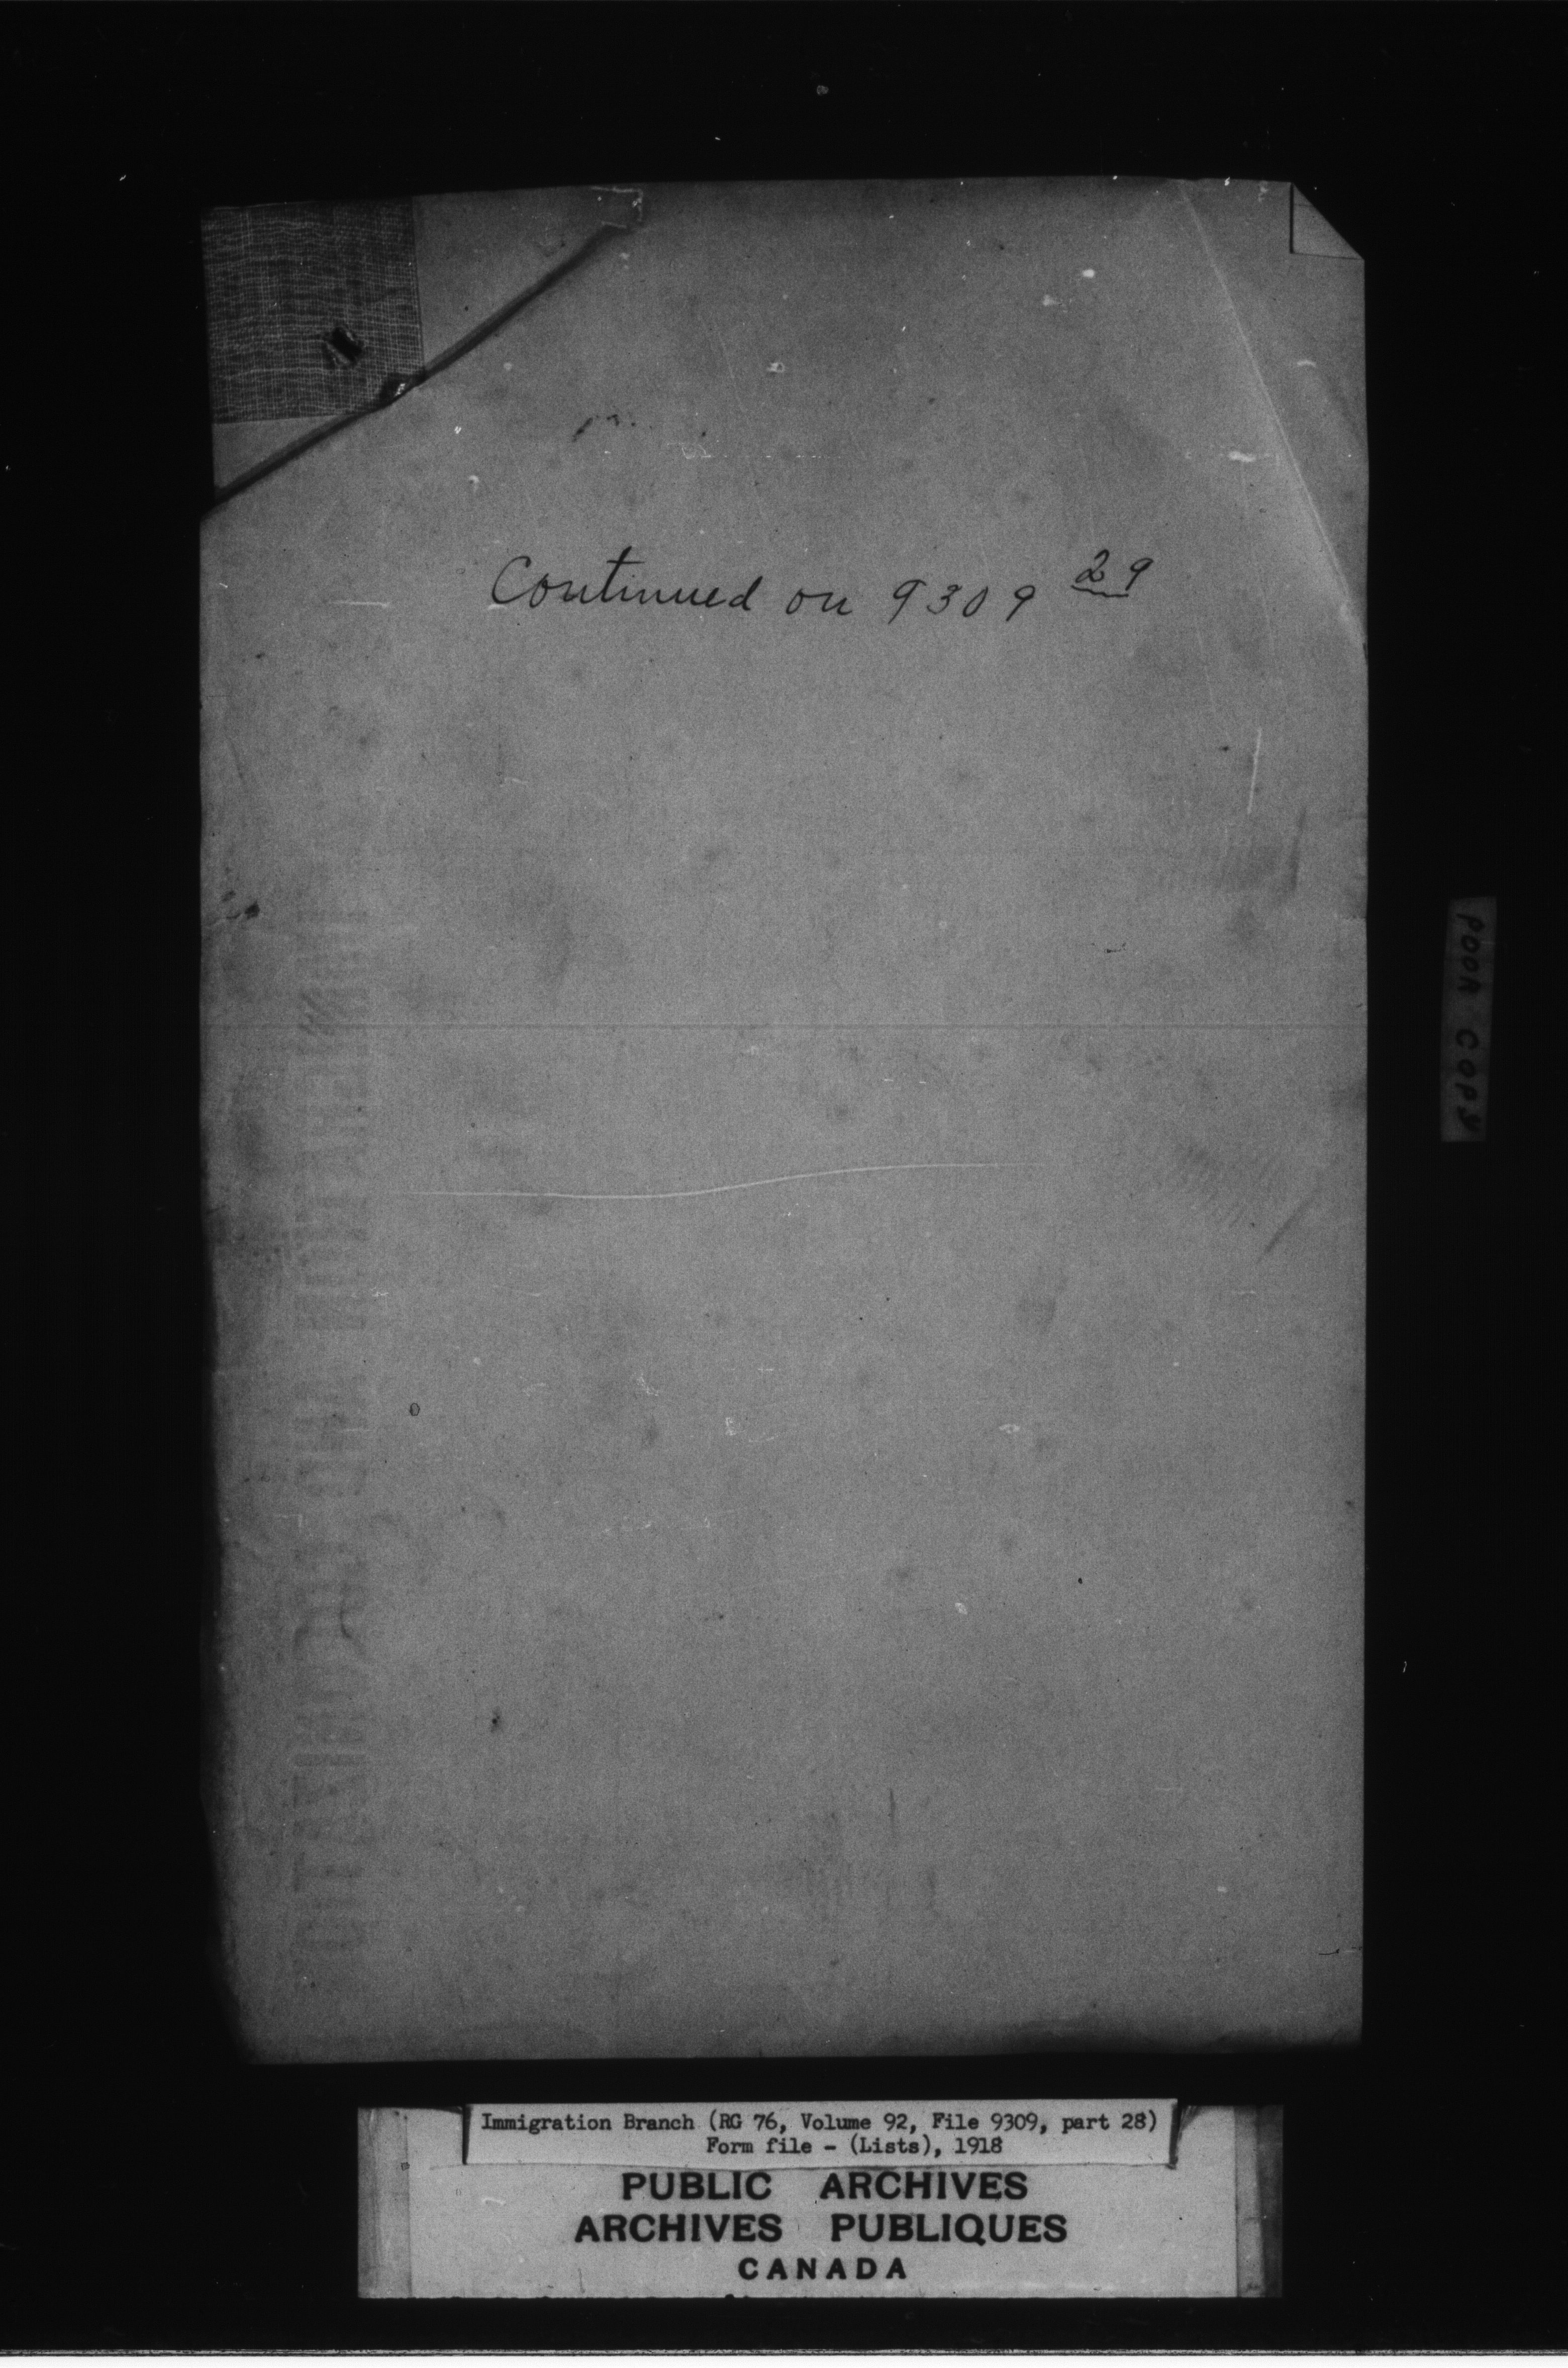 Continued on 9309 29
POOR COPY
Immigration Branch (RG 76, Volume 92, File 9309, part 28)
Form file - (Lists), 1918
PUBLIC ARCHIVES
ARCHIVES PUBLIQUES
CANADA